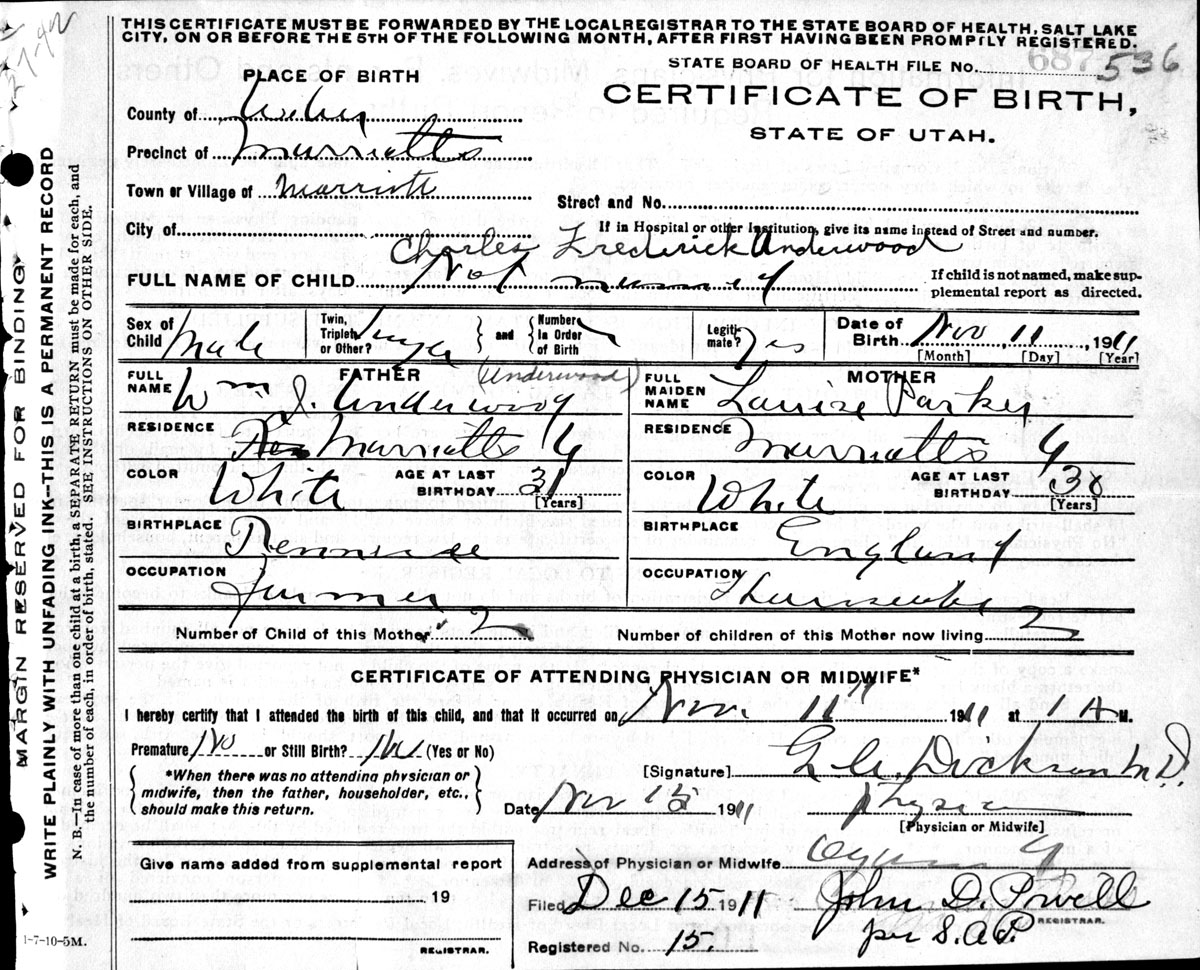 THIS CERTIFICATE MUST BE FORWARDED BY THE LOCAL REGISTRAR TO THE STATE BOARD OF HEALTH, SALT LAKE
CITY, ON OR BEFORE THE 5TH OF THE FOLLOWING MONTH, AFTER FIRST HAVING BEEN PROMPTLY REGISTERED.
STATE BOARD OF HEALTH FILE No. 536
PLACE OF BIRTH
CERTIFICATE OF BIRTH,
STATE OF UTAH.
County of Weber
Precinct of Marriotts
Town or Village of Marriott
Street and No.
City of
If in Hospital or other Institution, give its name instead of Street and number.
Charles Frederick Underwood
FULL NAME OF CHILD Not named
If child is not named, make sup-
plemental report as directed.
Sex of Child Male Twin, Triplet or Other? and Number in Order of Birth Legiti-mate? Yes Date of Birth Nov 11, 1911
[Month] [Day] [Year]
FATHER (Underwood) MOTHER
FULL NAME Wm J. Underwood FULL MAIDEN NAME Louise Parker
RESIDENCE Marriotts RESIDENCE Marriotts
COLOR White AGE AT LAST BIRTHDAY 31 [Years] COLOR White AGE AT LAST BIRTHDAY 30 [Years]
BIRTHPLACE BIRTHPLACE England
OCCUPATION Farmer OCCUPATION
Number of Child of this Mother 2 Number of children of this Mother now living 2
CERTIFICATE OF ATTENDING PHYSICIAN OR MIDWIFE*
I hereby certify that I attended the birth of this child, and that it occurred on Nov. 11 1911 at 1 A M.
Premature No or Still Birth? No (Yes or No)
*When there was no attending physician or
midwife, then the father, householder, etc.,
should make this return.
[Signature] Dickson M.D.
Date Nov 1911
[Physician or Midwife]
Give name added from supplemental report
19
REGISTRAR.
Address of Physician or Midwife.
Filed Dec 15 1911 John D. Powell
REGISTRAR.
per S. A. P.
Registered No. 15.
1-7-10-5M.
MARGIN RESERVED FOR BINDING
WRITE PLAINLY WITH UNFADING INK—THIS IS A PERMANENT RECORD
N. B.—In case of more than one child at a birth, a SEPARATE RETURN must be made for each, and
the number of each, in order of birth, stated. SEE INSTRUCTIONS ON OTHER SIDE.